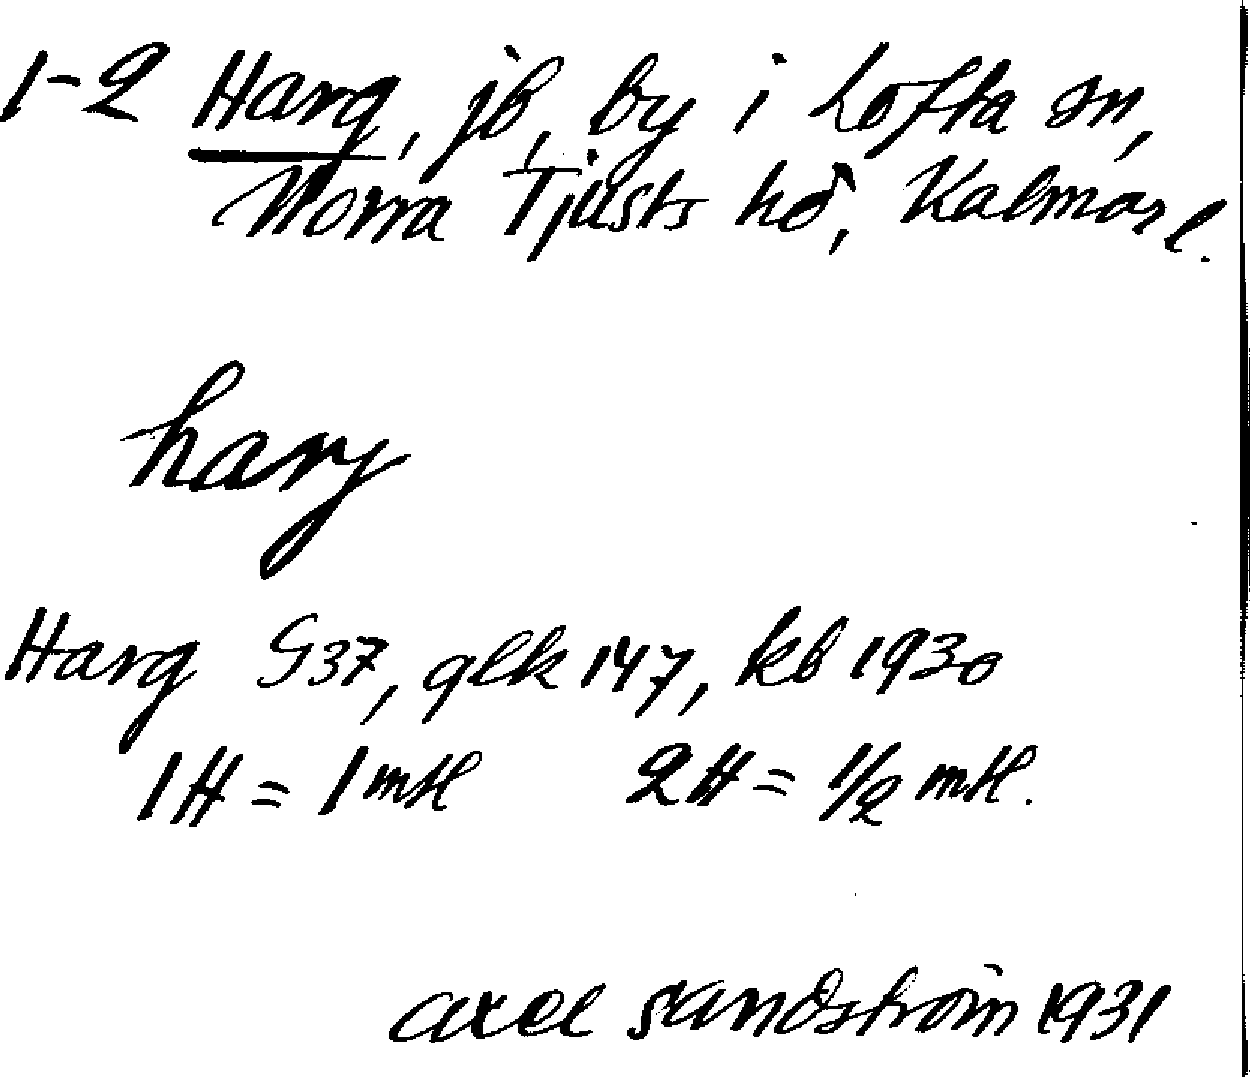 1-2 Harg, jb, by i Lofta sn,
Norra Tjusts hd, Kalmar l.
harj
Harg G37, glk 147, kb 1930
1H = 1 mtl 2H = 1/2 mtl.
axel sandström 1931